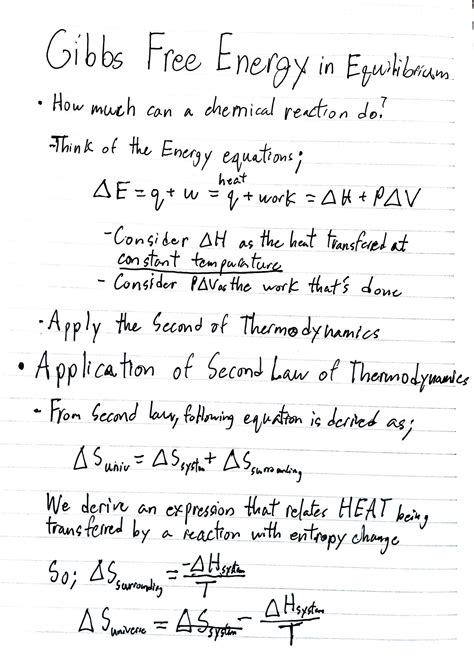 Gibbs Free Energy in Equilibrium
• How much can a chemical reaction do?
-Think of the Energy equations;
heat
ΔE = q + w = q + work = ΔH + PΔV
-Consider ΔH as the heat transfered at
constant temperature
- Consider PΔV as the work that's done
-Apply the Second of Thermodynamics
• Application of Second Law of Thermodynamics
- From Second law, following equation is derived as;
ΔSuniv = ΔSsystem + ΔSsurrounding
We derive an expression that relates HEAT being
transferred by a reaction with entropy change
So; ΔSsurrounding = -ΔHsystem / T
ΔSuniverse = ΔSsystem - ΔHsystem / T